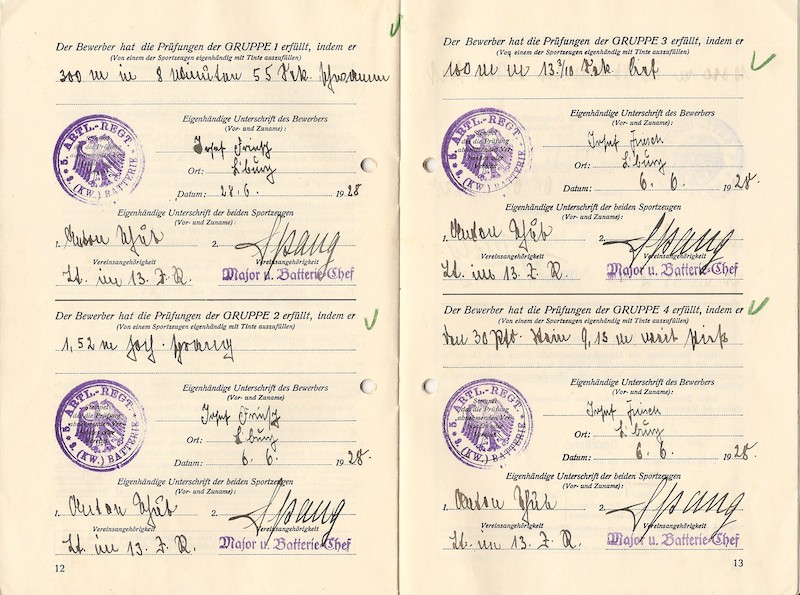 Der Bewerber hat die Prüfungen der GRUPPE 1 erfüllt, indem er
(Von einem der Sportzeugen eigenhändig mit Tinte auszufüllen)
300 m in 8 Minuten 55 Sek. schwamm
Eigenhändige Unterschrift des Bewerbers
(Vor- und Zuname):
Josef
Ort: L'burg
Datum: 28. 6. 1928
5. ARTL.-REGT.
2. (KW.) BATTERIE
Eigenhändige Unterschrift der beiden Sportzeugen
(Vor- und Zuname):
1. Anton 2. Spang
Vereinsangehörigkeit Vereinsangehörigkeit
Lt. im 13. J. R. Major u. Batterie-Chef
Der Bewerber hat die Prüfungen der GRUPPE 2 erfüllt, indem er
(Von einem Sportzeugen eigenhändig mit Tinte auszufüllen)
1,52 m hoch sprang
Eigenhändige Unterschrift des Bewerbers
(Vor- und Zuname)
Josef
Ort: L'burg
Datum: 6. 6. 1928.
5. ARTL.-REGT.
2. (KW.) BATTERIE
Eigenhändige Unterschrift der beiden Sportzeugen
(Vor- und Zuname):
1. Anton 2. Spang
Vereinsangehörigkeit Vereinsangehörigkeit
Lt. im 13. J. R. Major u. Batterie-Chef
12
Der Bewerber hat die Prüfungen der GRUPPE 3 erfüllt, indem er
(Von einem der Sportzeugen eigenhändig mit Tinte auszufüllen)
100 m in 13 3/10 Sek. lief
Eigenhändige Unterschrift des Bewerbers
(Vor- und Zuname):
Josef
Ort: L'burg
Datum: 6. 6. 1928.
5. ARTL.-REGT.
2. (KW.) BATTERIE
Eigenhändige Unterschrift der beiden Sportzeugen
(Vor- und Zuname):
1. Anton 2. Spang
Vereinsangehörigkeit Vereinsangehörigkeit
Lt. im 13. J. R. Major u. Batterie-Chef
Der Bewerber hat die Prüfungen der GRUPPE 4 erfüllt, indem er
(Von einem Sportzeugen eigenhändig mit Tinte auszufüllen)
den 30 Pfd. Stein 9,13 m weit stieß
Eigenhändige Unterschrift des Bewerbers
(Vor- und Zuname):
Josef
Ort: L'burg
Datum: 6. 6. 1928.
5. ARTL.-REGT.
2. (KW.) BATTERIE
Eigenhändige Unterschrift der beiden Sportzeugen
(Vor- und Zuname):
1. Anton 2. Spang
Vereinsangehörigkeit Vereinsangehörigkeit
Lt. im 13. J. R. Major u. Batterie-Chef
13